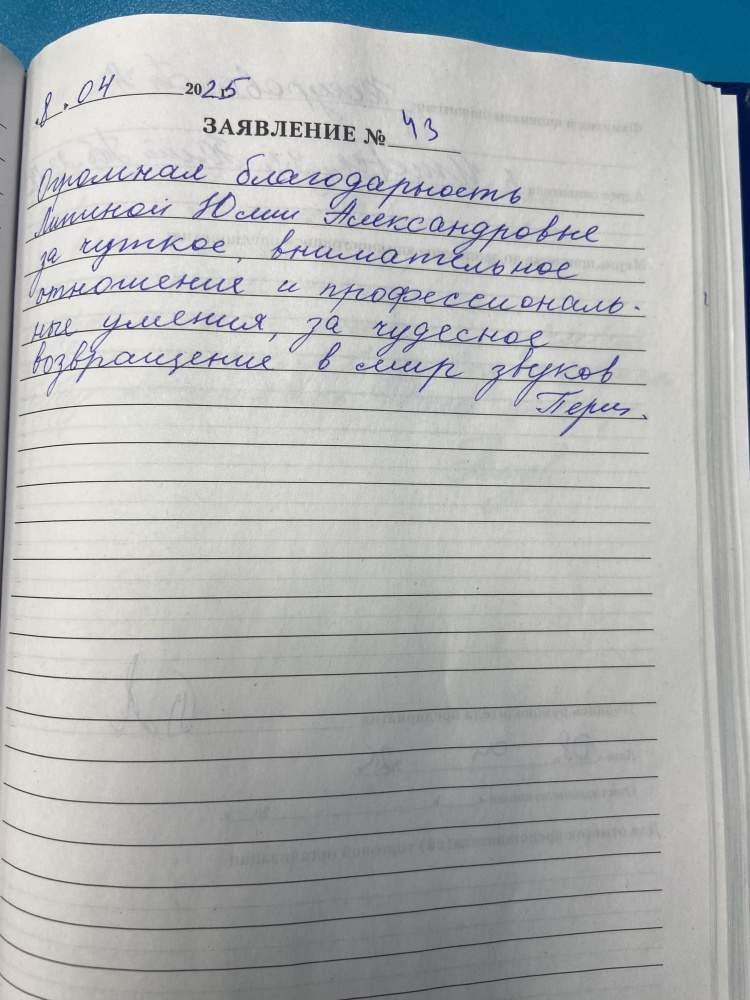 8. 04 2025
ЗАЯВЛЕНИЕ № 43
Огромная благодарность
Юлии Александровне
за чуткое, внимательное
отношение и профессиональ-
ные умения, за чудесное
возвращение в мир звуков